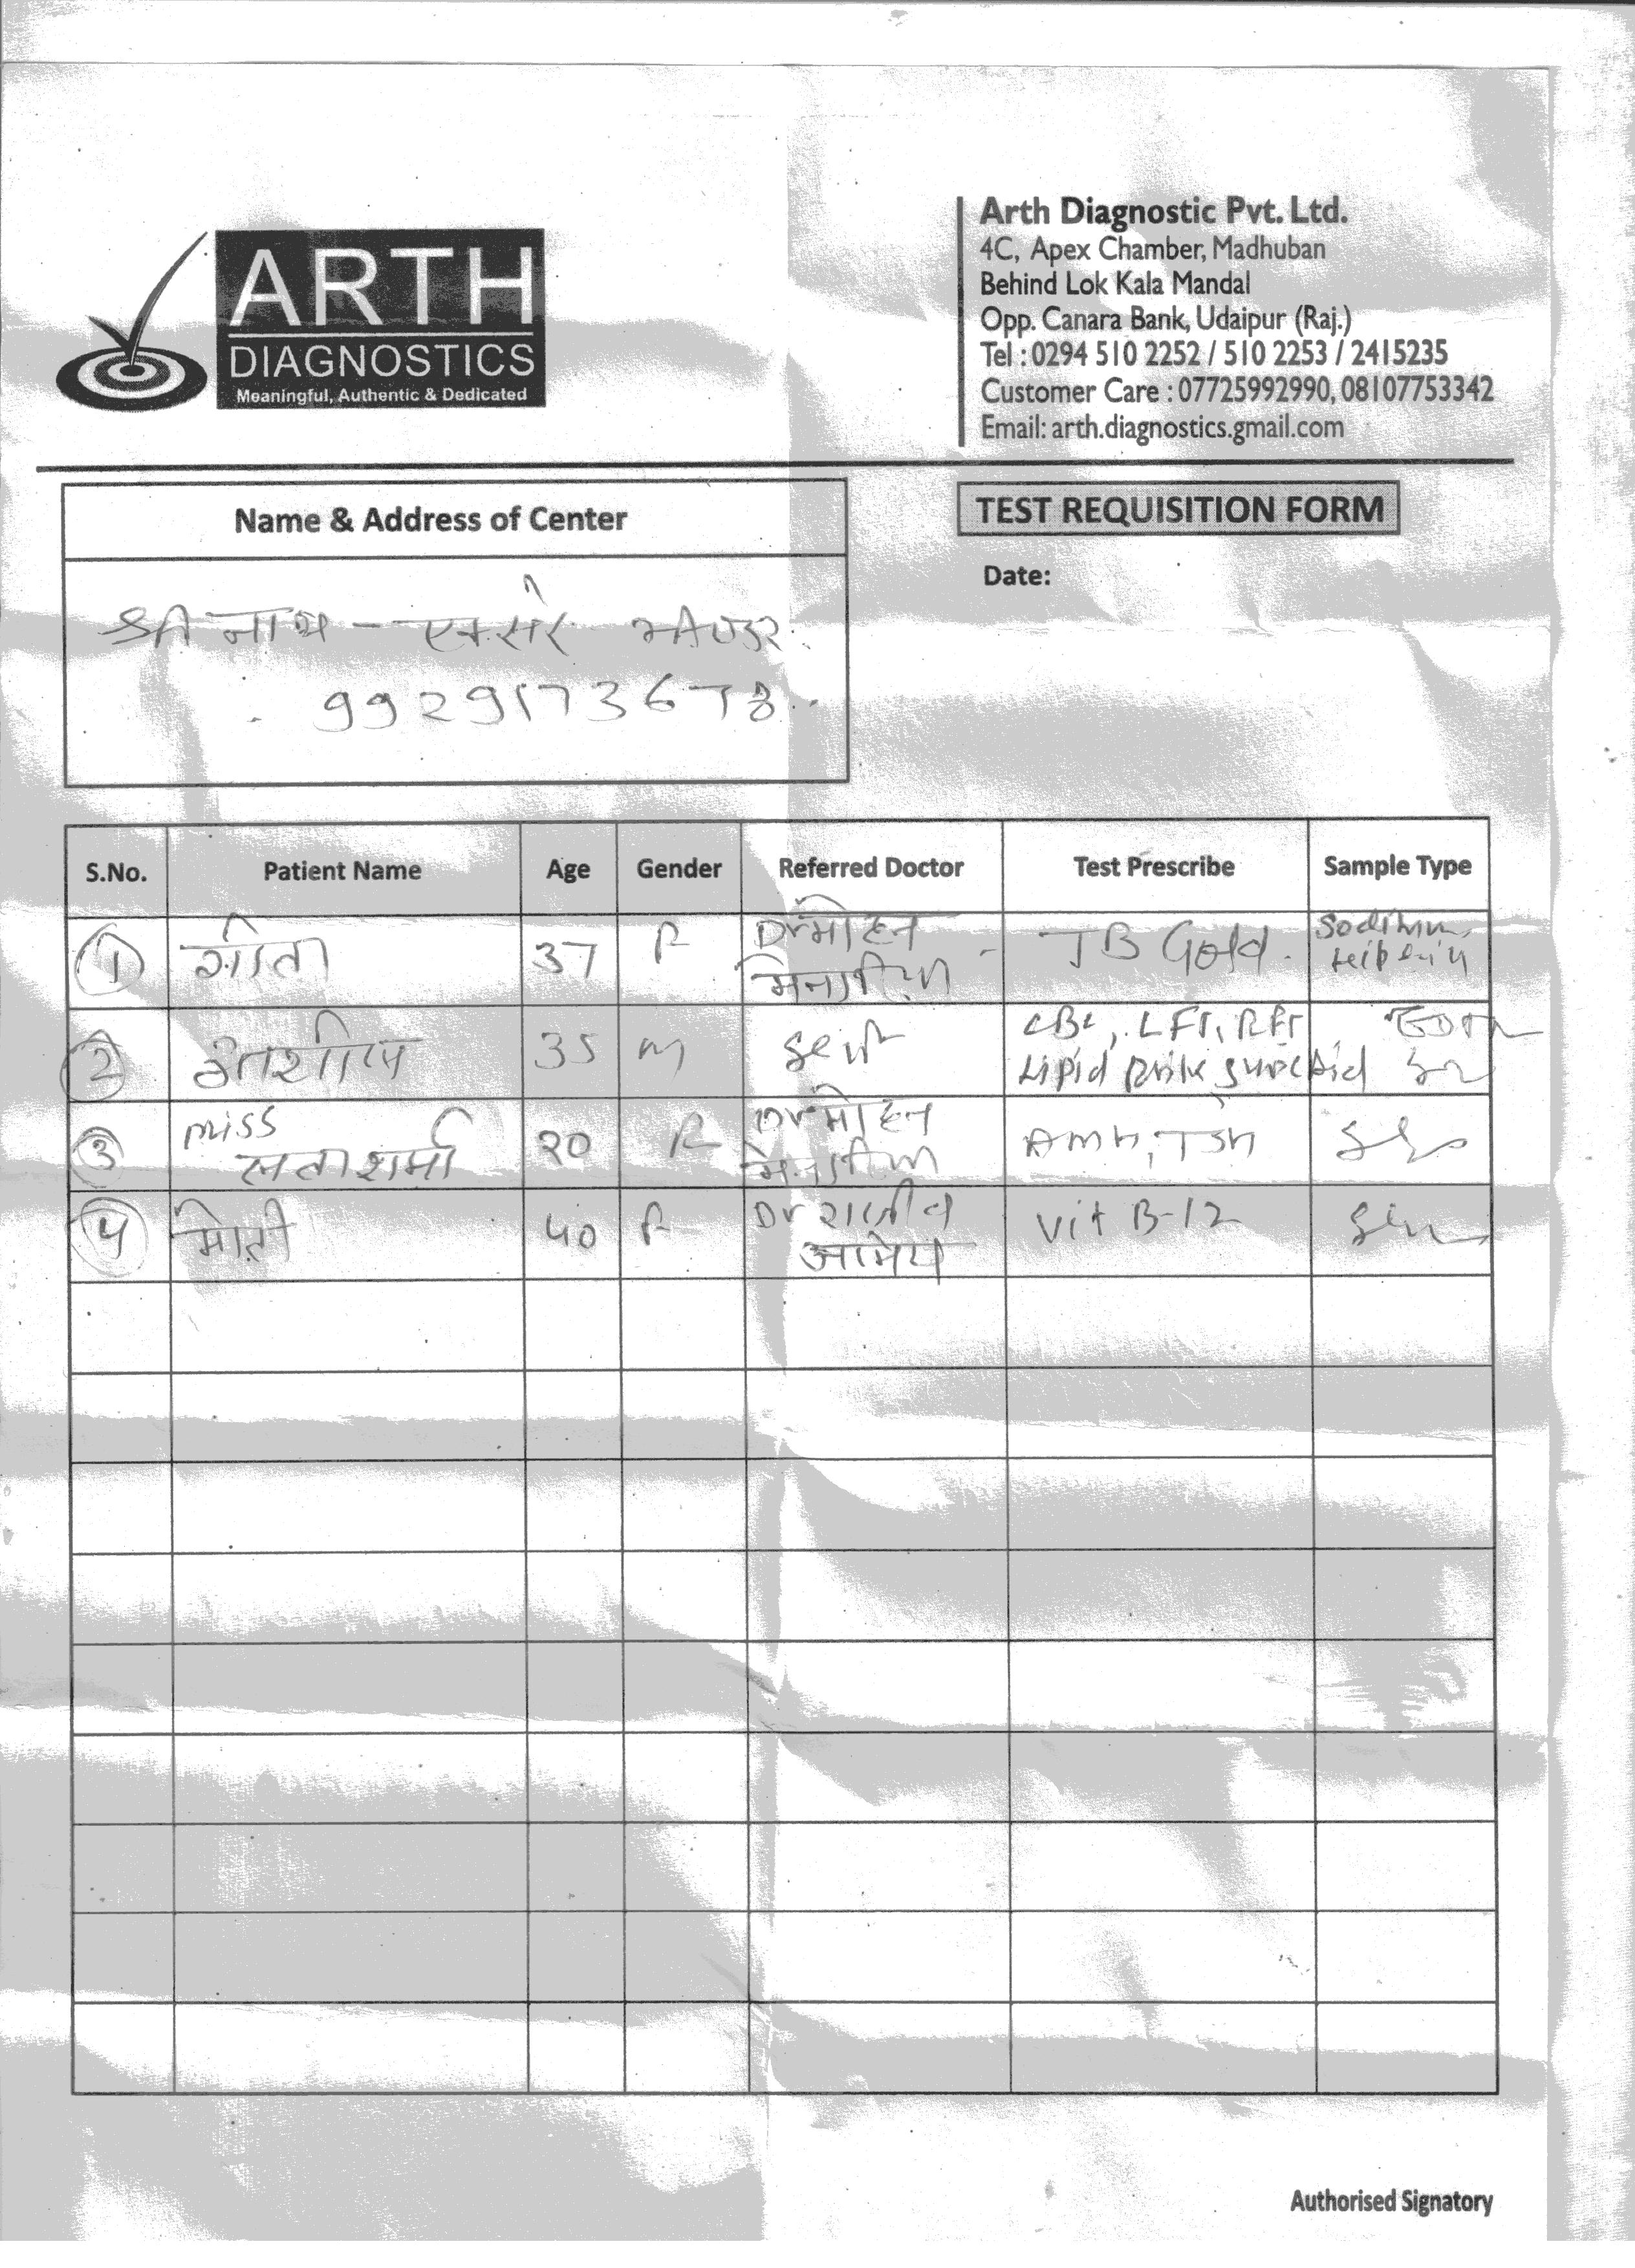 ARTH
DIAGNOSTICS
Meaningful, Authentic & Dedicated
Arth Diagnostic Pvt. Ltd.
4C, Apex Chamber, Madhuban
Behind Lok Kala Mandal
Opp. Canara Bank, Udaipur (Raj.)
Tel : 0294 510 2252 / 510 2253 / 2415235
Customer Care : 07725992990, 08107753342
Email: arth.diagnostics.gmail.com
Name & Address of Center
TEST REQUISITION FORM
Date:
श्री नाथ - एक्सरे भीण्डर
S.No. Patient Name Age Gender Referred Doctor Test Prescribe Sample Type
1 गीता 37 F Dr मोहन मेनारीया TB Gold. Sodium
2 35 m self CBC, LFT, RFT
Lipid
3 miss लता शर्मा 20 F Dr मोहन मेनारीया AMH, TSH
4 40 F Dr राजीव आमेय Vit B-12
Authorised Signatory